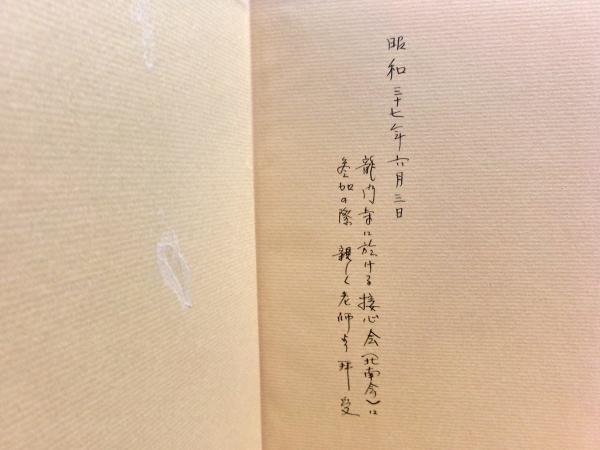 昭和三十七年六月三日
龍門寺に於ける接心会(北南会)に
参加の際 親しく老師より拝受